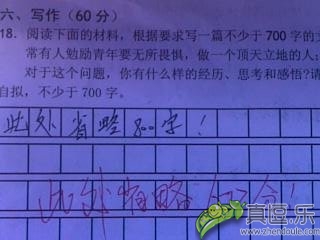 六、写作（60分）
18. 阅读下面的材料，根据要求写一篇不少于700字的文
常有人勉励青年要无所畏惧，做一个顶天立地的人；
对于这个问题，你有什么样的经历、思考和感悟？请
自拟，不少于700字。
此处省略800字！
此处省略
真逗.乐
www.zhendoule.com